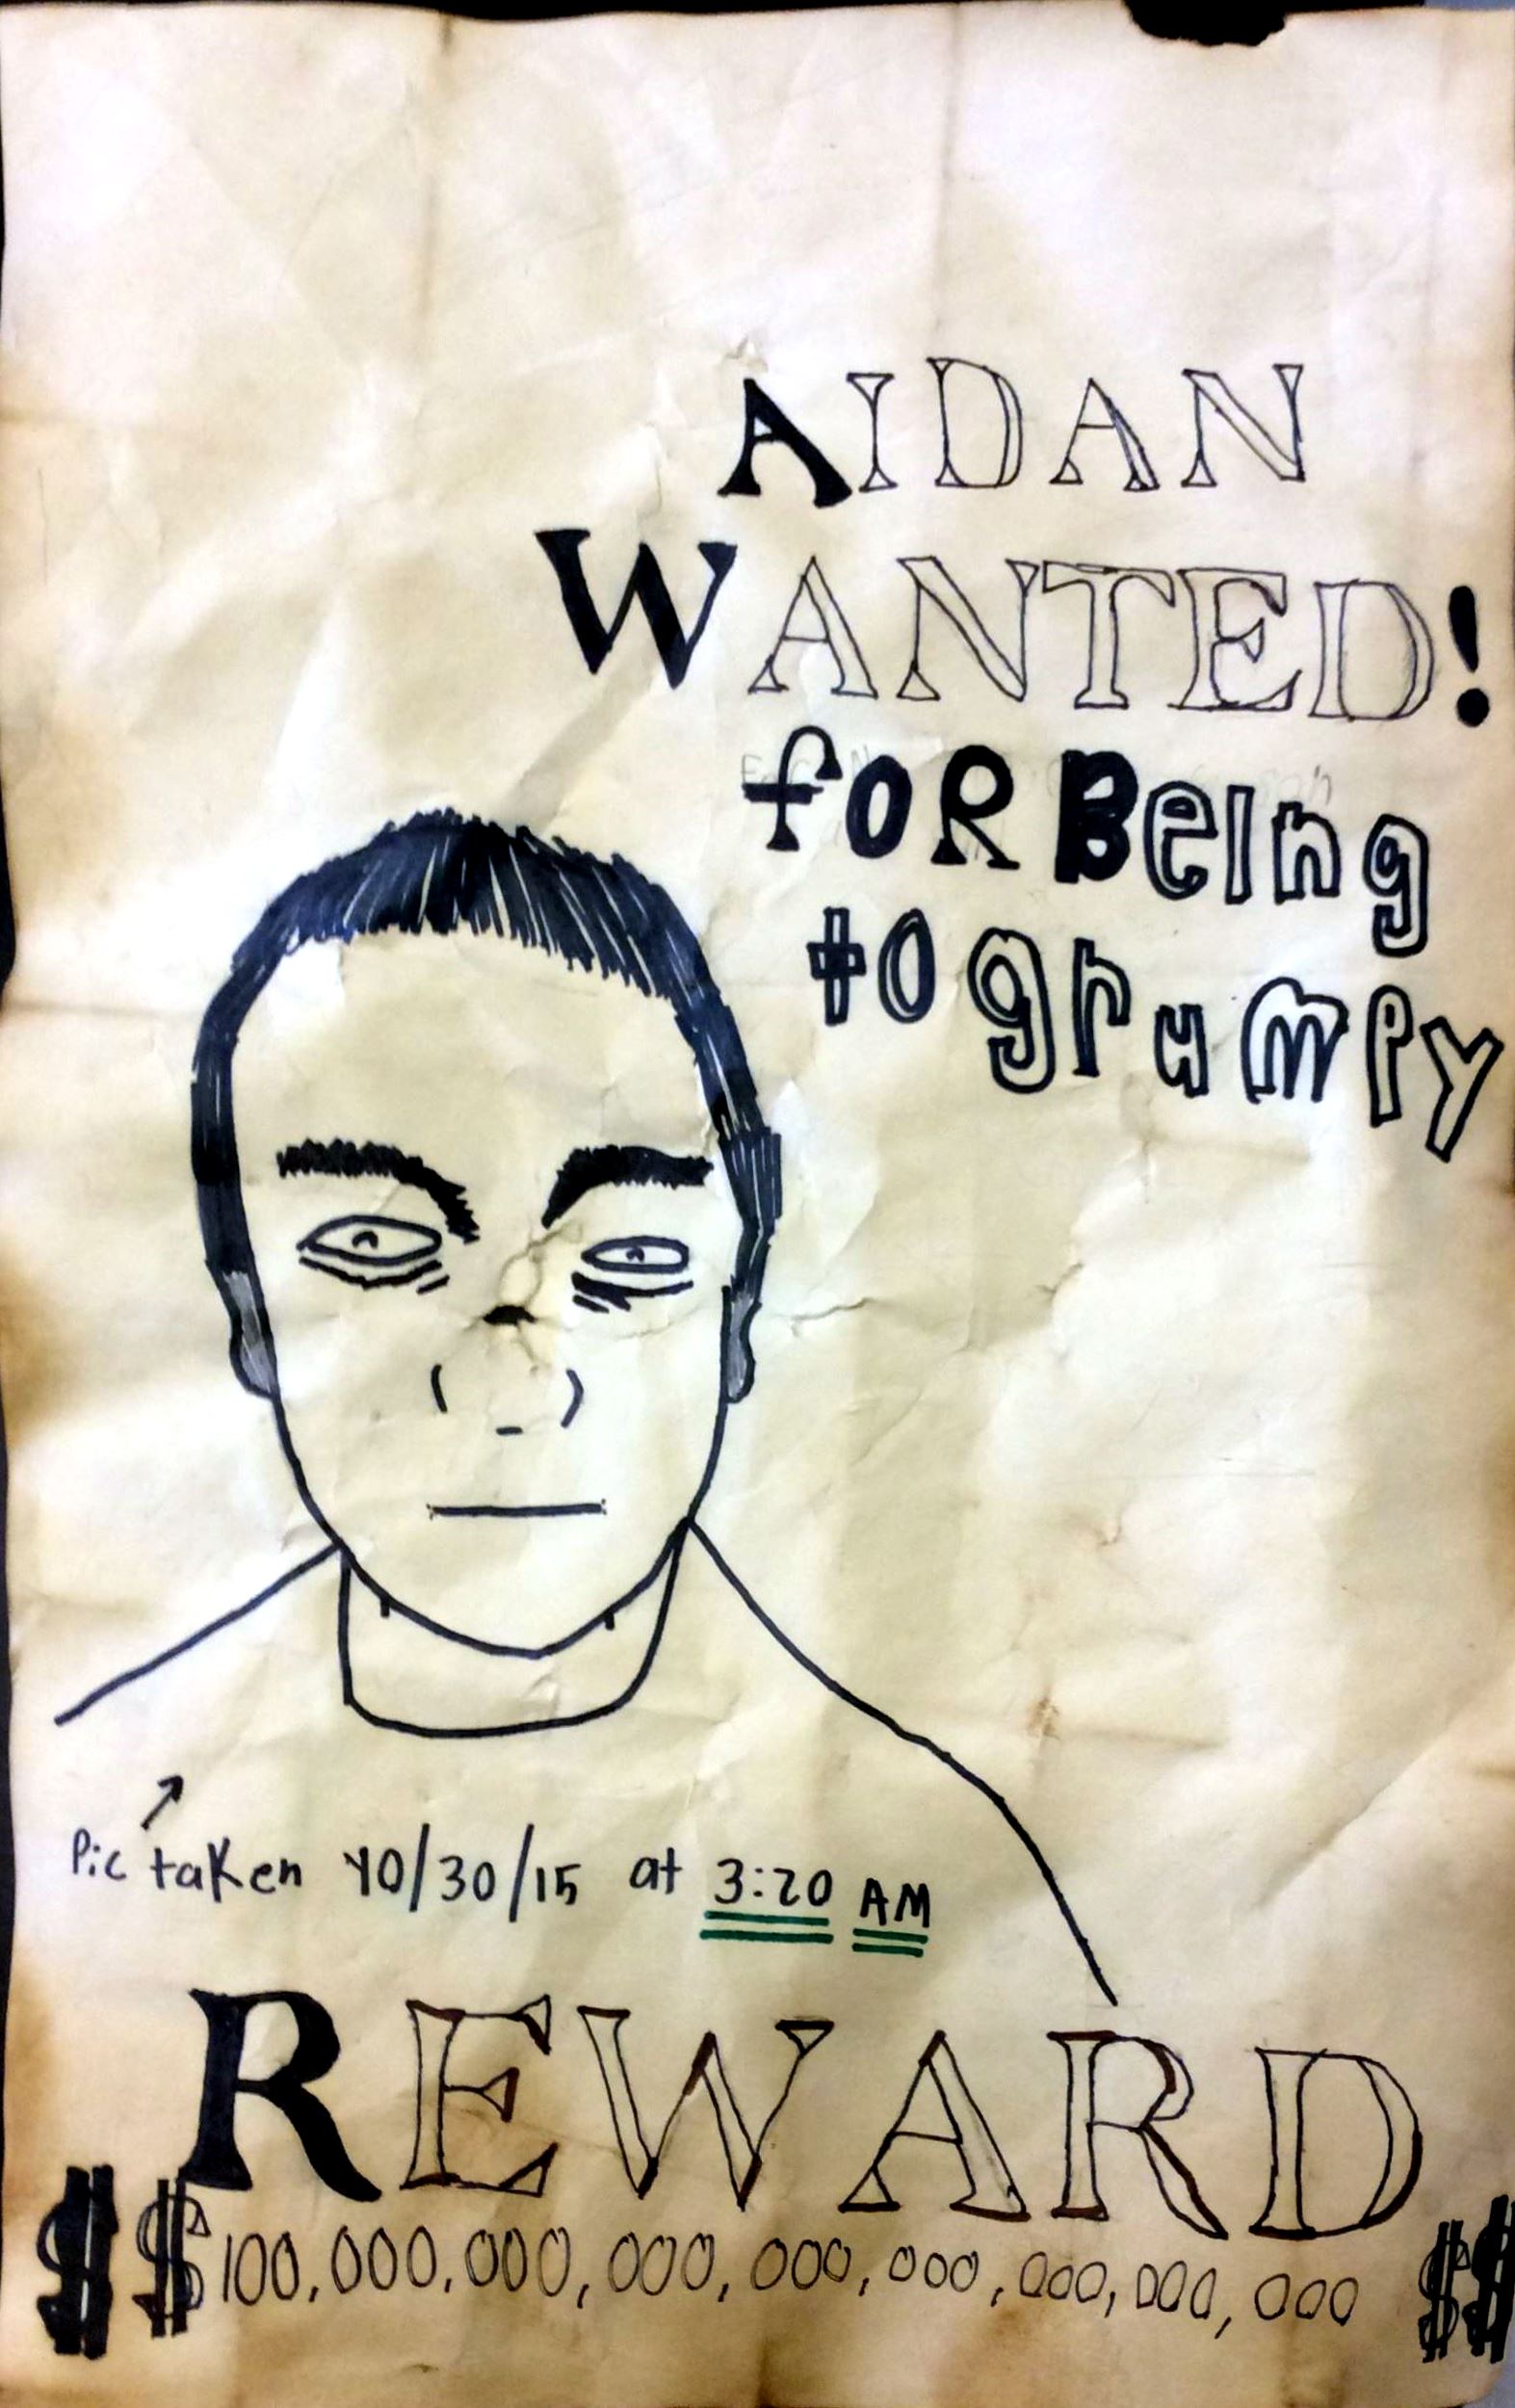 AIDAN
WANTED!
foR BeIng
to grumpy
Pic taken 10/30/15 at 3:20 AM
REWARD
$$100,000,000,000,000,000,000,000,000 $$